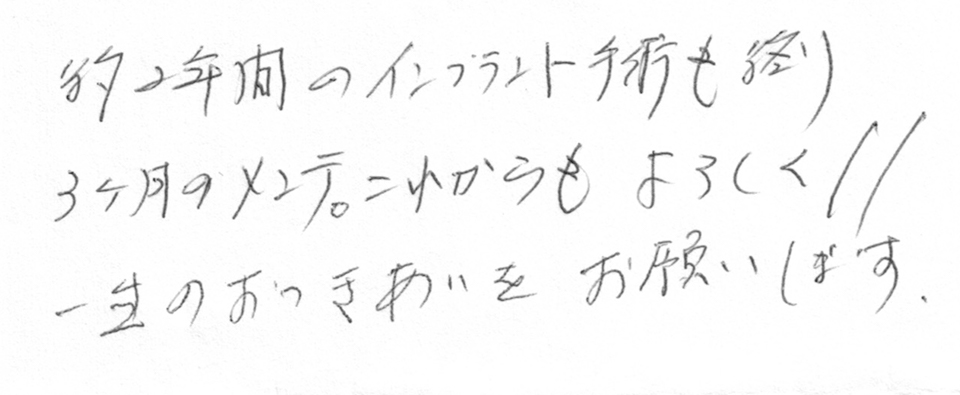 約2年間のインプラント手術も終り
3ヶ月のメンテ。これからもよろしく//
一生のおつきあいをお願いします.